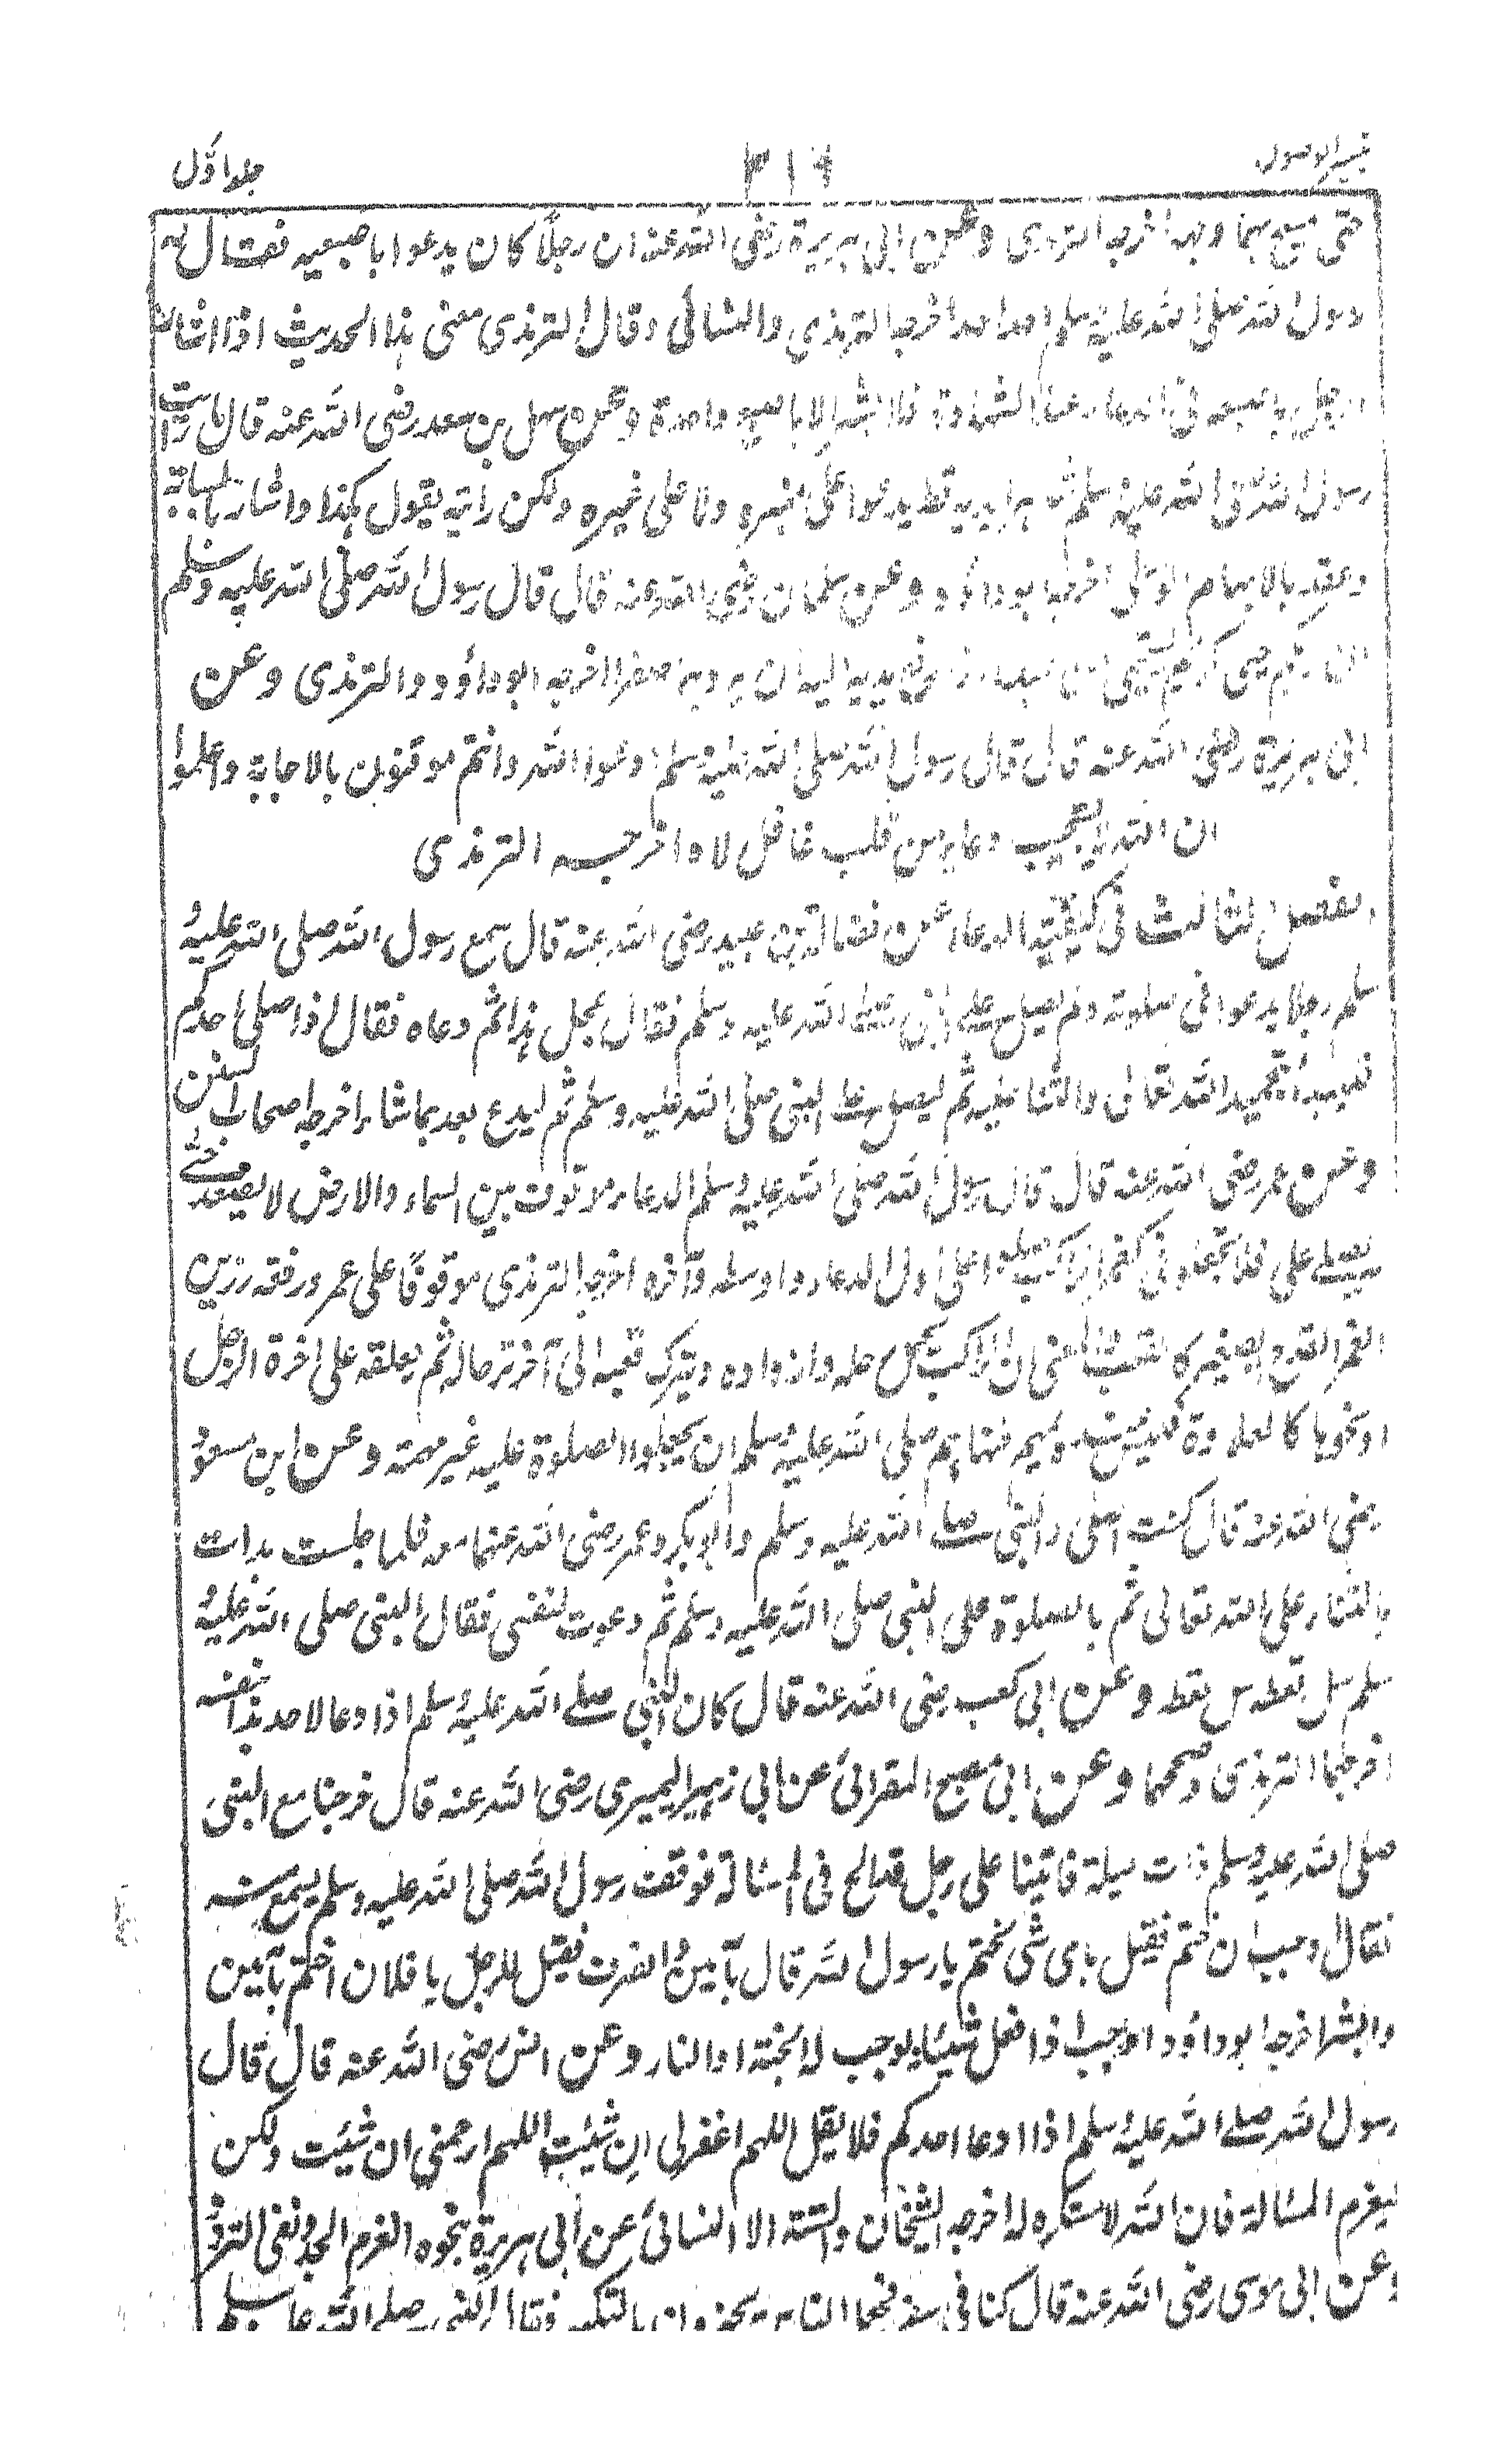 تيسير الوصول ٢١٩ جلد اوّل
حتى يمسح بهما وجهه اخرجه الترمذى وعن ابى هريرة رضى الله عنه ان رجلًا كان يدعوا باصبعيه فقال له
رسول الله صلى الله عليه وسلم احد احد اخرجه الترمذى والنسائى وقال الترمذى معنى هذا الحديث اذا اشار
الرجل باصبعيه فى الدعاء عند الشهادة فلا يشير الا باصبع واحدة وعن سهل بن سعد رضى الله عنه قال ما رايت
رسول الله صلى الله عليه وسلم شاهرا يديه قط يدعوا على منبره ولا على غيره ولكن رايته يقول هكذا واشار بالسبابة
وعقد بالابهام الوسطى اخرجه ابو داؤد وعن سلمان رضى الله عنه قال قال رسول الله صلى الله عليه وسلم
ان ربكم حيى كريم يستحيى من عبده اذا رفع يديه اليه ان يردهما صفرا اخرجه ابو داؤد والترمذى وعن
ابى هريرة رضى الله عنه قال قال رسول الله صلى الله عليه وسلم ادعوا الله وانتم موقنون بالاجابة واعلموا
ان الله لا يستجيب دعاء من قلب غافل لاه اخرجه الترمذى
الفصل الثالث فى كيفية الدعاء عن فضالة بن عبيد رضى الله عنه قال سمع رسول الله صلى الله عليه و
سلم رجلا يدعوا فى صلوته ولم يصل على النبى صلى الله عليه وسلم فقال عجل هذا ثم دعاه فقال اذا صلى احدكم
فليبدأ بتحميد الله تعالى والثناء عليه ثم ليصل على النبى صلى الله عليه وسلم ثم ليدع بعد بما شاء اخرجه اصحاب السنن
وعن عمر رضى الله عنه قال قال رسول الله صلى الله عليه وسلم الدعاء موقوف بين السماء والارض لا يصعد حتى
يصلى على فلا تجعلونى كغمر الراكب صلوا على اول الدعاء واوسطه وآخره اخرجه الترمذى موقوفًا على عمر ورفعه رزين
الغمر القدح الصغير كالقعب والمعنى ان الراكب يحمل رحله وازواده ويترك قعبه الى آخر ترحاله ثم يعلقه على اخرة الرحل
او نحوها كالعلاوة فليس عنده بمهم فنهاهم صلى الله عليه وسلم ان يجعلوا الصلوة عليه غير مهمة وعن ابن مسعود
رضى الله عنه قال كنت اصلى والنبى صلى الله عليه وسلم وابو بكر وعمر رضى الله عنهما معه فلما جلست بدات
بالثناء على الله تعالى ثم بالصلوة على النبى صلى الله عليه وسلم ثم دعوت لنفسى فقال النبى صلى الله عليه و
سلم سل تعطه سل تعطه وعن ابى كعب رضى الله عنه قال كان النبى صلے الله عليه وسلم اذا دعا لاحد بدا بنفسه
اخرجهما الترمذى وصححهما وعن ابى مصبح المقرائى عن ابى زهير النميرى رضى الله عنه قال خرجنا مع النبى
صلى الله عليه وسلم ذات ليلة فاتينا على رجل قد الح فى المسئالة فوقف رسول الله صلى الله عليه وسلم يسمع منه
فقال اوجب ان ختم فقيل باى شئ يختم يا رسول الله قال بآمين وانصرف فقيل للرجل يا فلان اختم بآمين
وابشر اخرجه ابو داؤد اوجب اذا فعل شيئا يوجب له الجنة او النار وعن انس رضى الله عنه قال قال
رسول الله صلے الله عليه وسلم اذا دعا احدكم فلا يقل اللهم اغفر لى ان شئيت اللهم ارحمنى ان شئيت ولكن
ليعزم المسئالة فان الله لا مستكره له اخرجه الشيخان والستة الا النسائى عن ابى هريرة بنحوه العزم الجد ونفى التردد
وعن ابى موسى رضى الله عنه قال كنا فى سفر فجعل الناس يجهرون بالتكبير فقال النبى صلے الله عليه وسلم